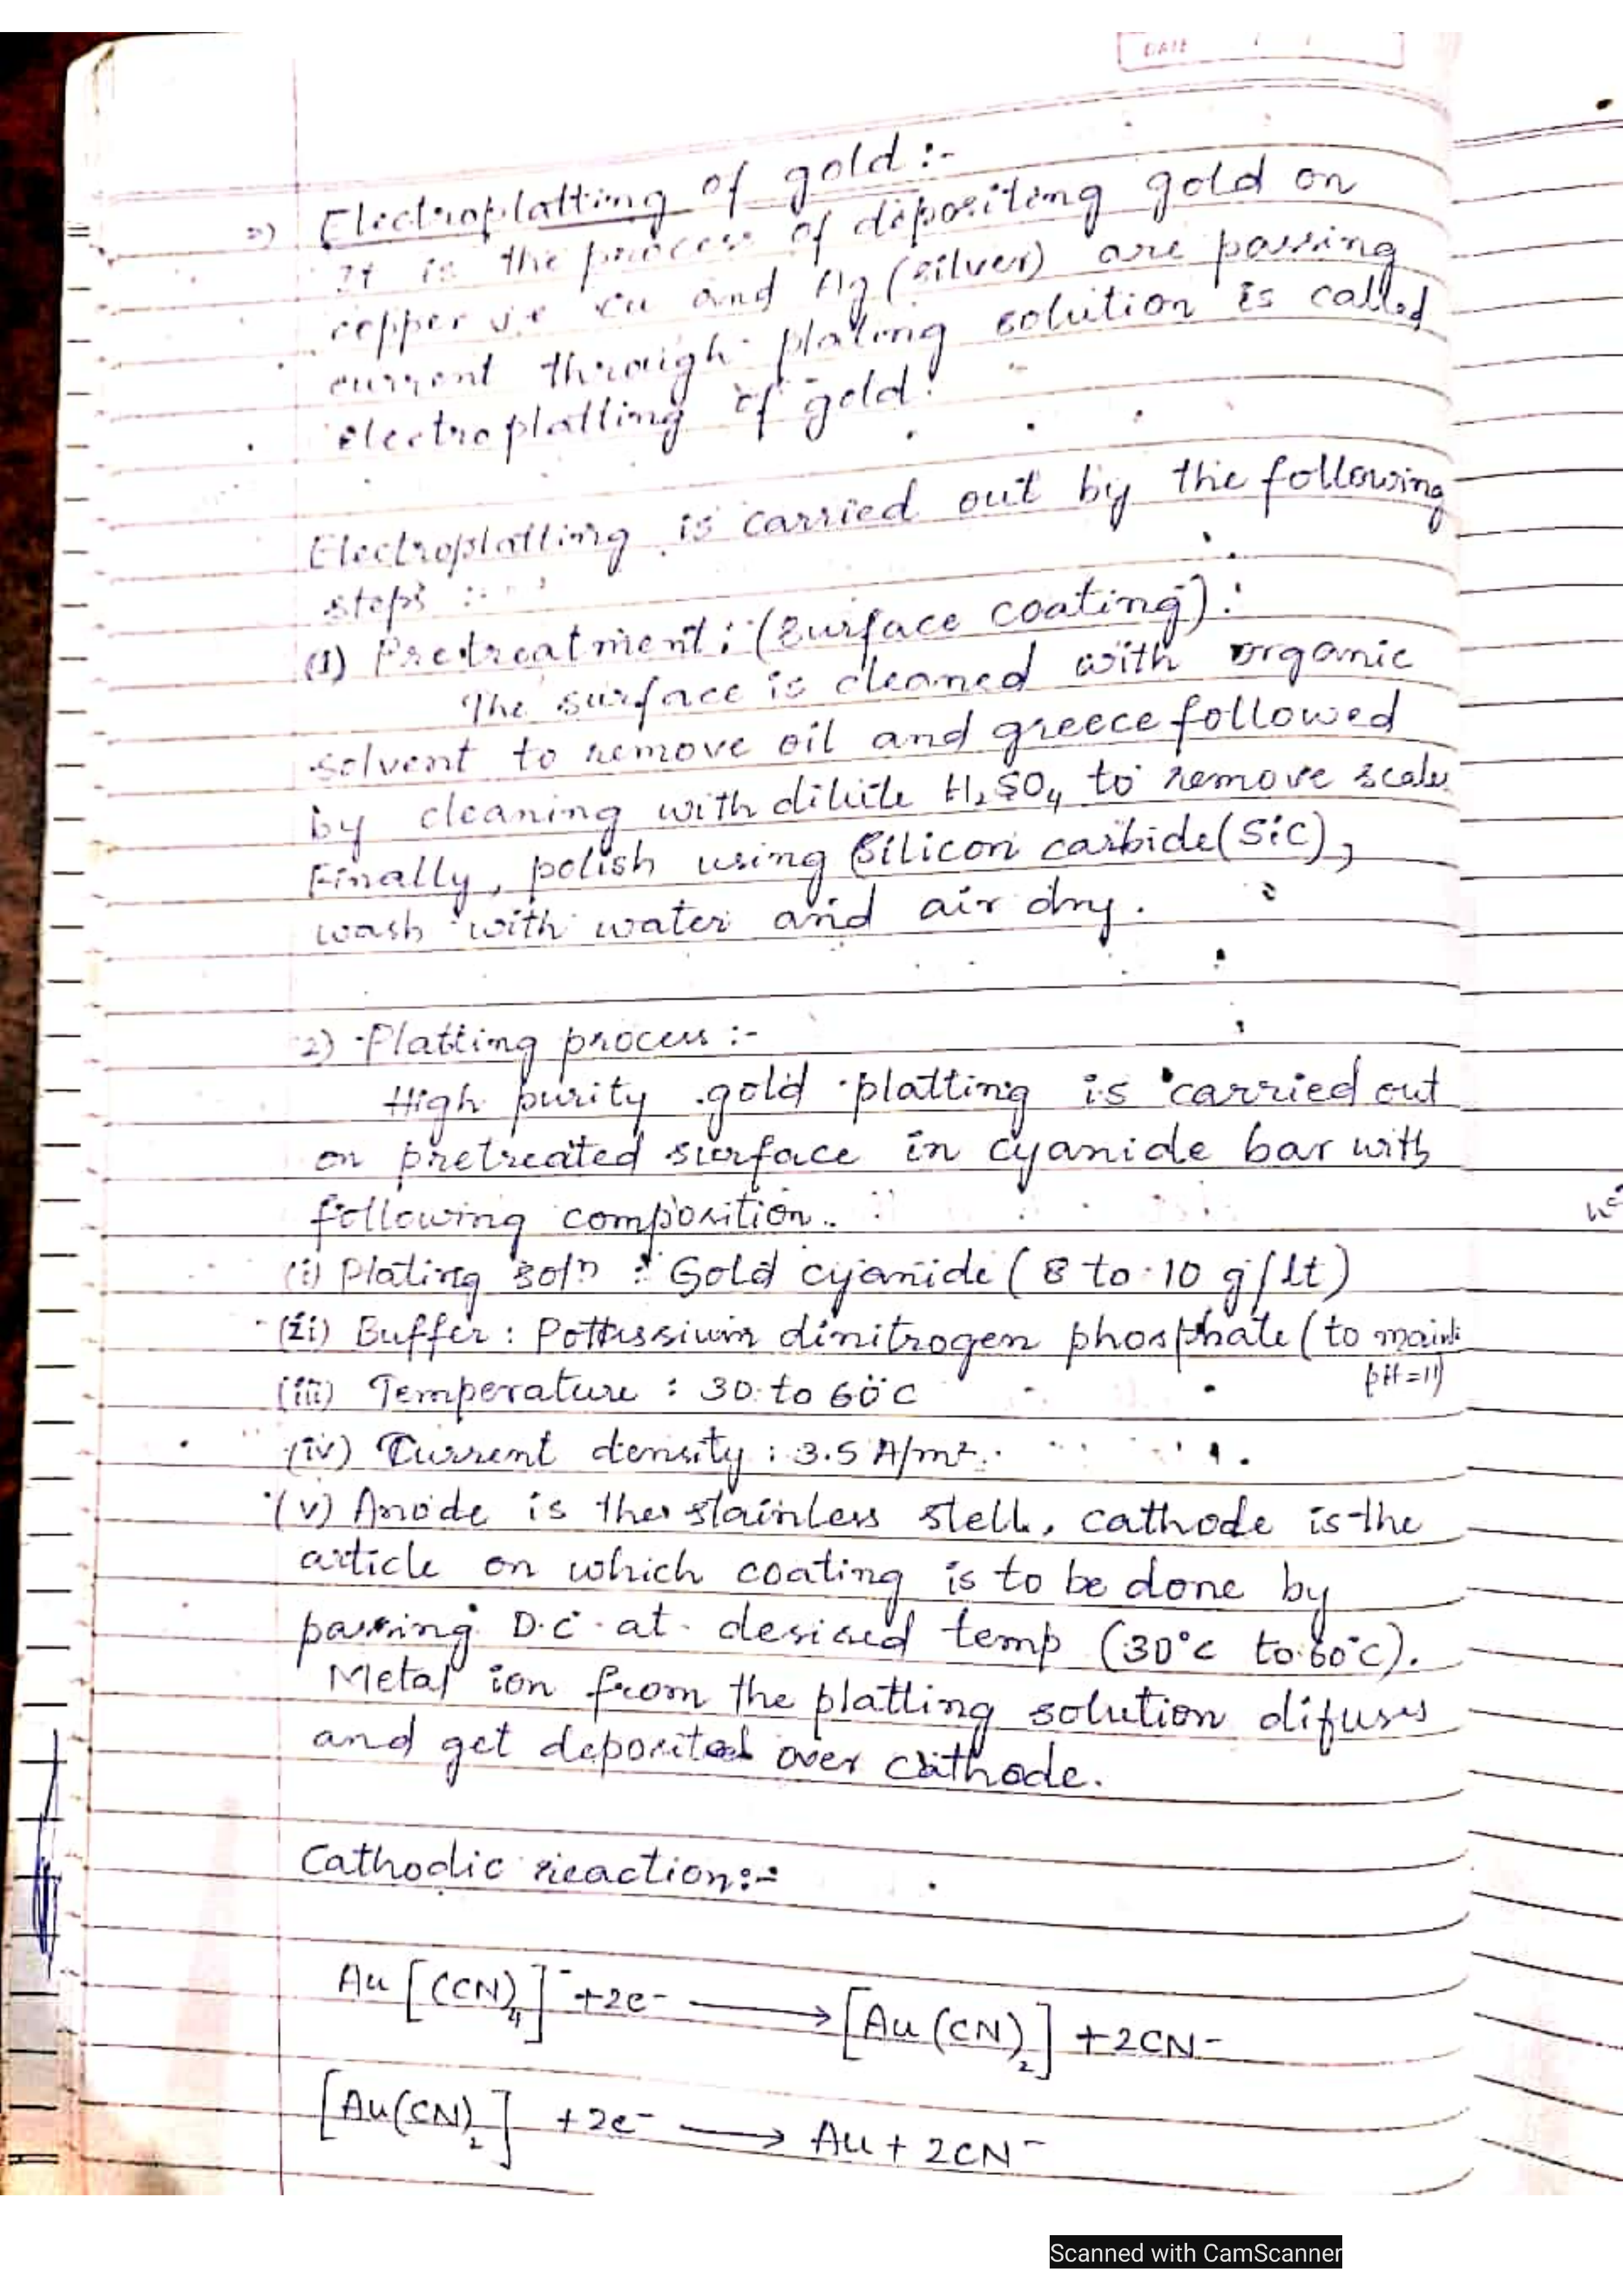 DATE / /
Electroplatting of gold :-
It is the process of depositing gold on
copper i.e Cu and Ag (silver) are passing
current through plating solution is called
electroplatting of gold.
Electroplatting is carried out by the following
steps :-
(1) Pretreatment: (Surface coating):
The surface is cleaned with organic
solvent to remove oil and greece followed
by cleaning with dilute H₂SO₄ to remove scales
Finally, polish using Silicon carbide (SiC),
wash with water and air dry.
2) Platting process :-
High purity gold platting is carried out
on pretreated surface in cyanide bar with
following composition.
(i) Plating solⁿ : Gold cyanide (8 to 10 g/lt)
(ii) Buffer : Pottassium dinitrogen phosphate (to maint
pH = 11)
(iii) Temperature : 30 to 60°C
(iv) Current density : 3.5 A/m².
(v) Anode is the stainless stell, cathode is the
article on which coating is to be done by
passing D.C at desired temp (30°c to 60°c).
Metal ion from the platting solution difuses
and get deposited over cathode.
Cathodic reaction:-
Au [(CN)₄]⁻ +2e⁻ ⟶ [Au (CN)₂] +2CN⁻
[Au(CN)₂] +2e⁻ ⟶ Au + 2CN⁻
Scanned with CamScanner